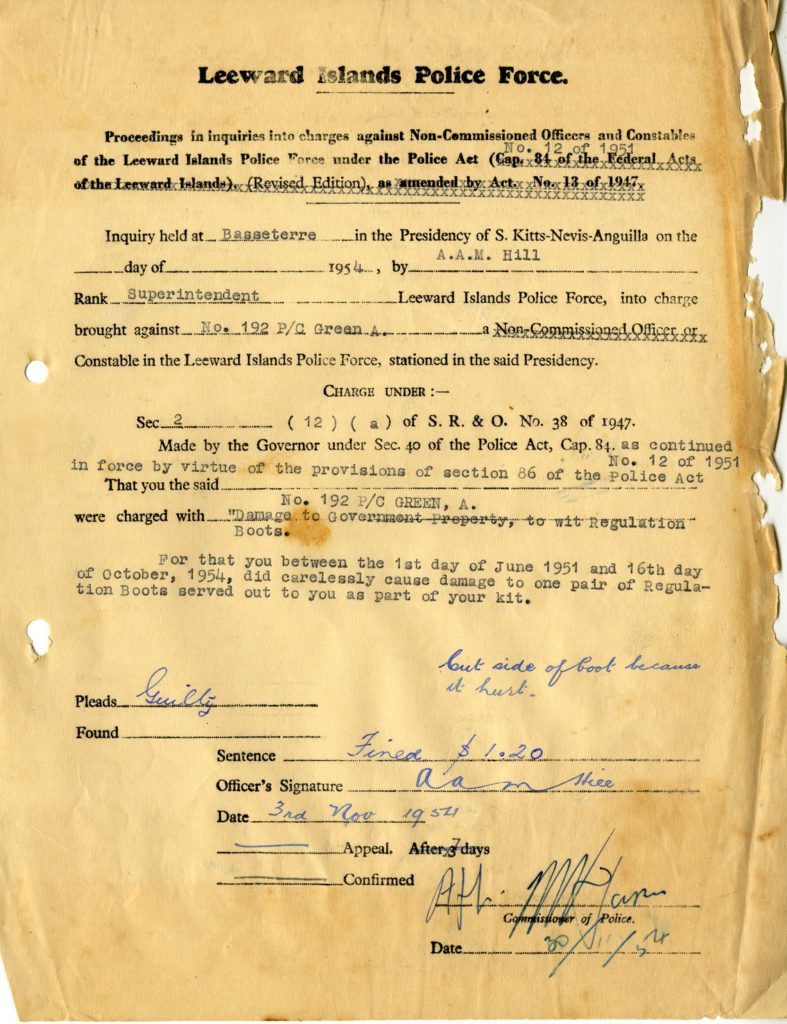 Leeward Islands Police Force.
Proceedings in inquiries into charges against Non-Commissioned Officers and Constables
No. 12 of 1951
of the Leeward Islands Police Force under the Police Act (Cap. 84 of the Federal Acts
of the Leeward Islands), (Revised Edition), as amended by Act. No. 13 of 1947.
Inquiry held at Basseterre in the Presidency of S. Kitts-Nevis-Anguilla on the
day of 1954, by A.A.M. Hill
Rank Superintendent Leeward Islands Police Force, into charge
brought against No. 192 P/C Green A. a Non-Commissioned Officer or
Constable in the Leeward Islands Police Force, stationed in the said Presidency.
CHARGE UNDER :—
Sec 2 (12) (a) of S. R. & O. No. 38 of 1947.
Made by the Governor under Sec. 40 of the Police Act, Cap. 84. as continued
in force by virtue of the provisions of section 86 of the Police Act
No. 12 of 1951
That you the said
No. 192 P/C GREEN, A.
were charged with "Damage to Government Property, to wit Regulation
Boots.
For that you between the 1st day of June 1951 and 16th day
of October, 1954, did carelessly cause damage to one pair of Regula-
tion Boots served out to you as part of your kit.
Cut side of boot because
it hurt.
Pleads Guilty
Found
Sentence Fined $1.20
Officer's Signature A a m Hill
Date 3rd Nov 1954
Appeal. After 7 days
Confirmed
Commissioner of Police.
Date 30/11/54